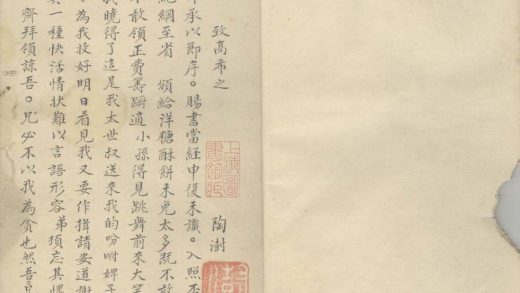 致高希之 陶澍
承以節序。賜書當經申復未識。入照
綱至省 頒給洋糖酥餅未免太多既不敢
敢領正費籌躕適小孫得見跳舞前來大笑
我曉得了這是我太世叔送來我的吩咐婢子
為我收好明日看見我又要作揖請安道謝
一種快活情狀難以言語形容弟頃忘其
齊拜領諒吾。兄必不以我為貪也然吾兄
上海圖書館藏